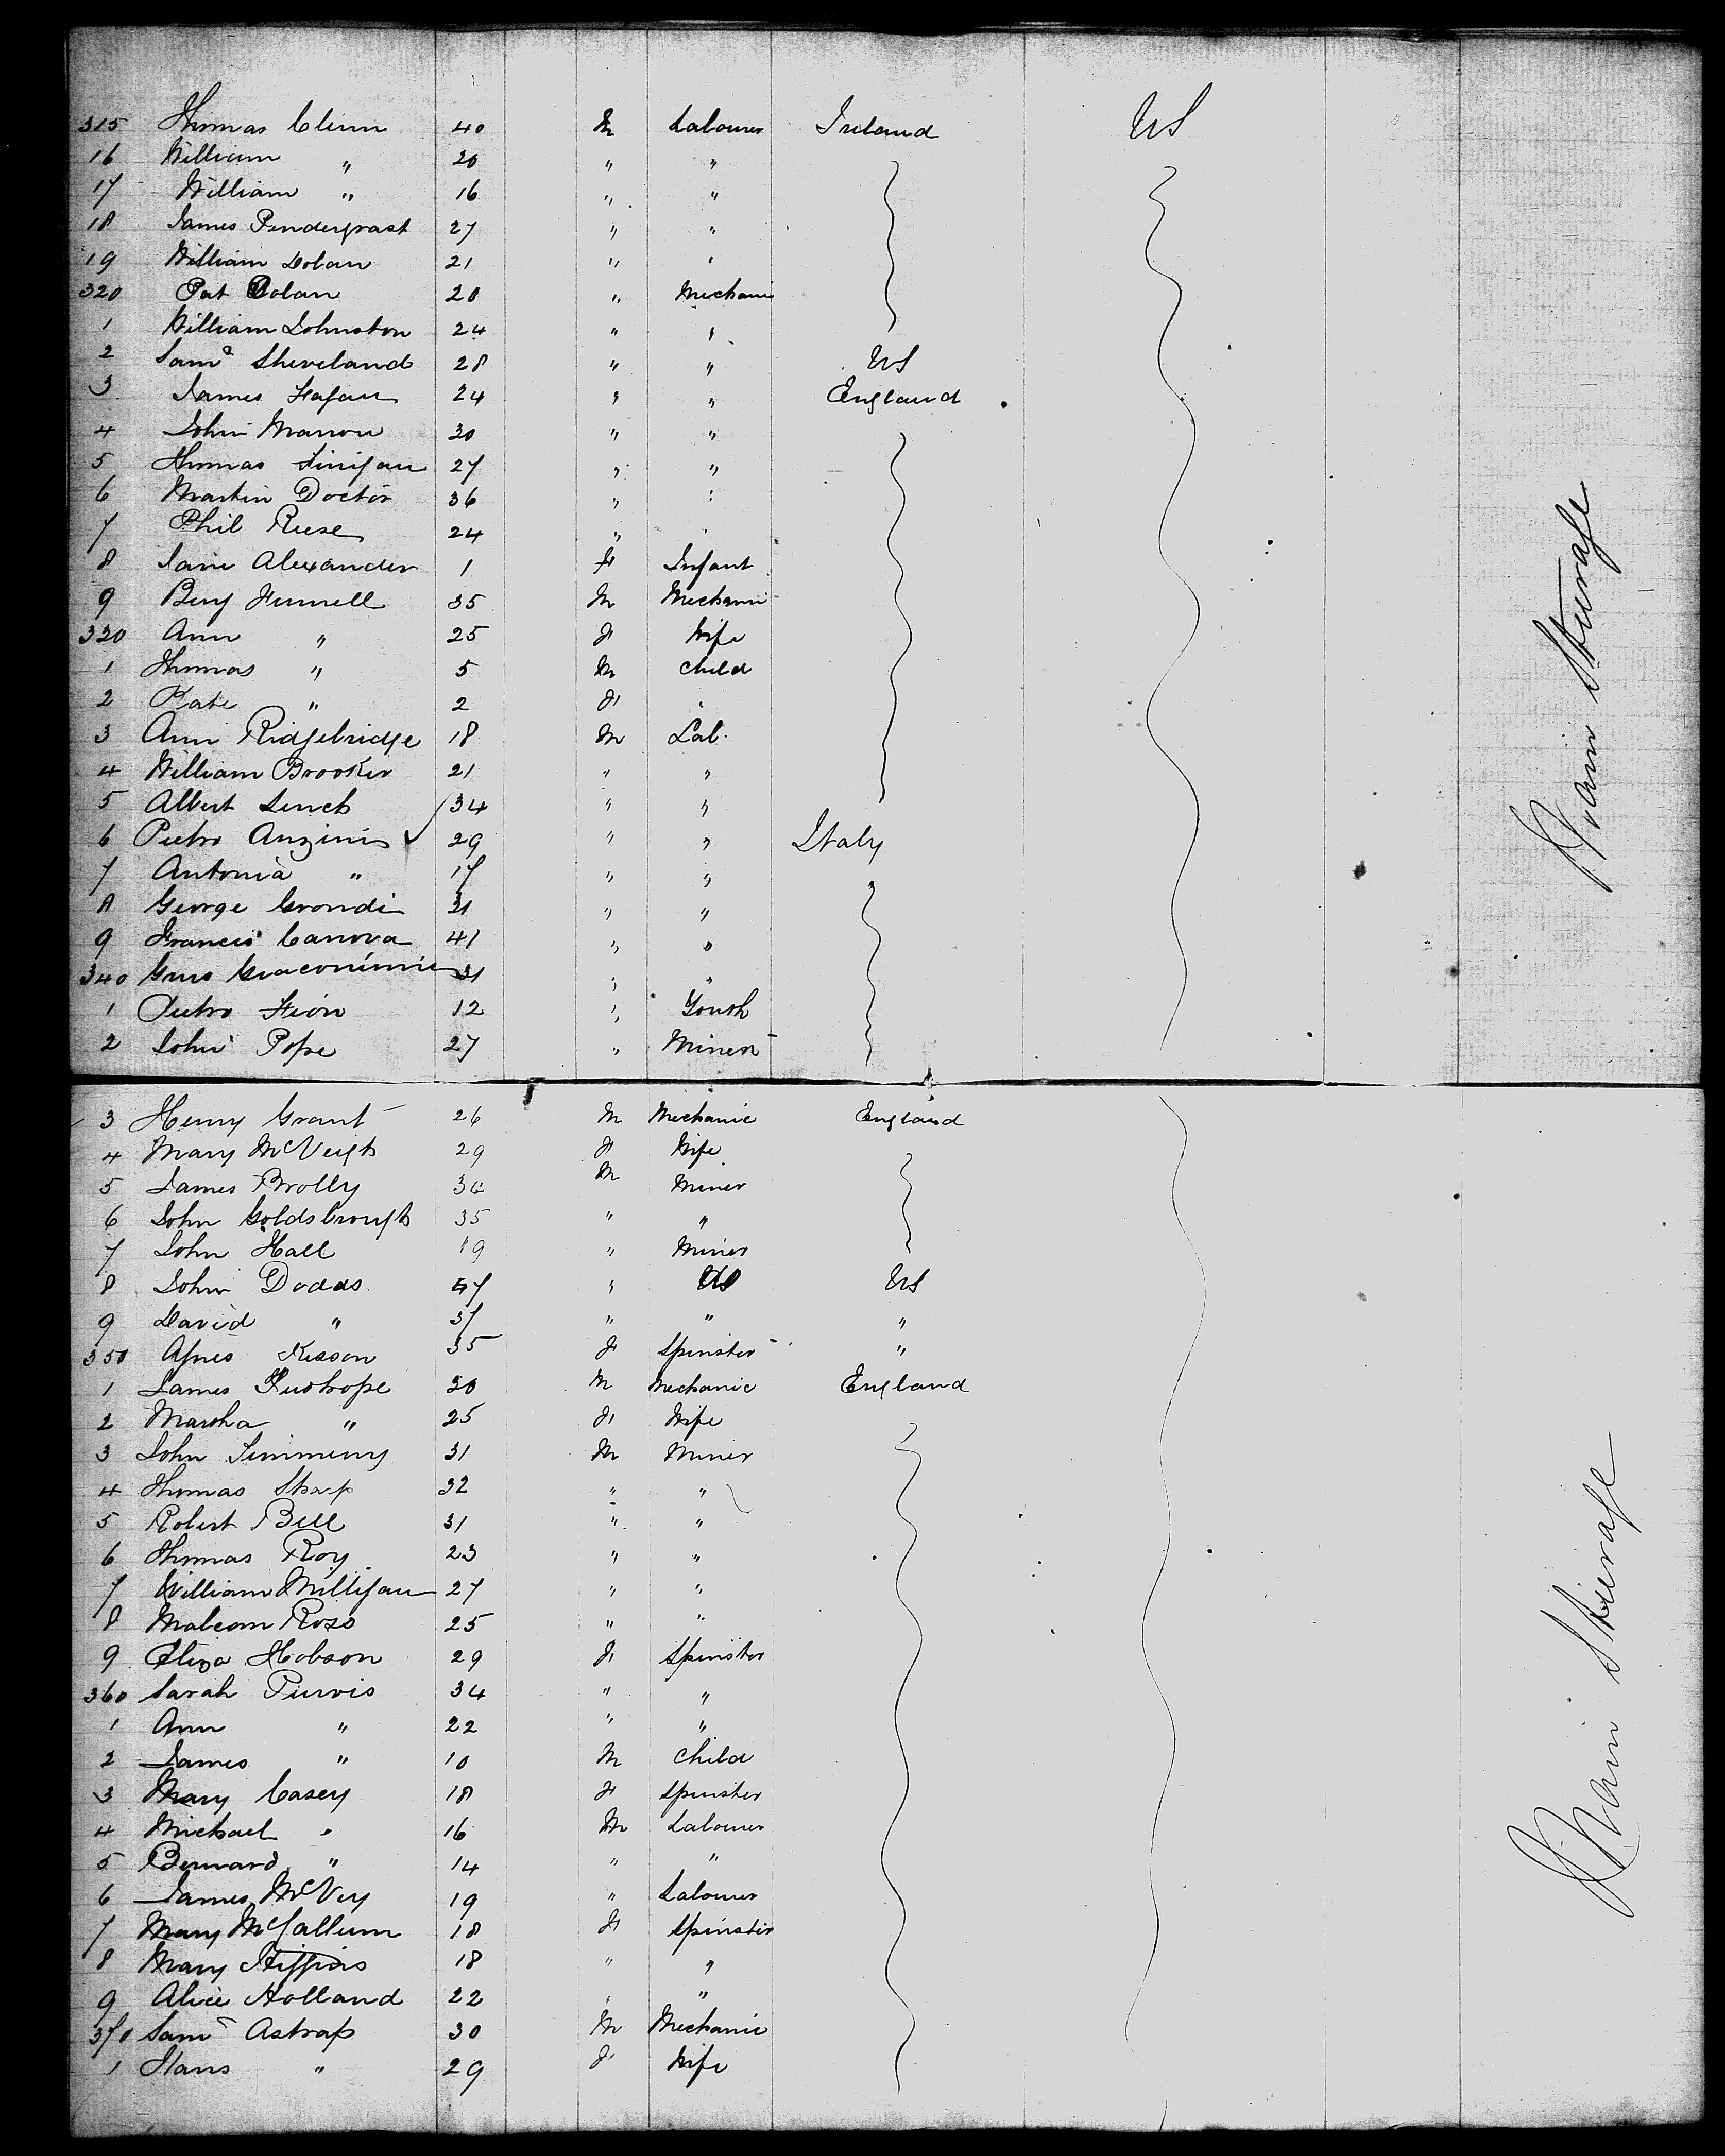 315 Thomas Clinn 40 M Labourer Ireland US
16 William " 20 " "
17 William " 16 " "
18 James Pendergrast 27 " "
19 William Dolan 21 " "
320 Pat Dolan 20 " Mechanic
1 William Johnston 24 " "
2 Saml Sheveland 28 " " US
3 James Fagan 24 " " England
4 John Marron 30 " "
5 Thomas Finigan 27 " "
6 Martin Doctor 36 " "
7 Phil Reese 24 " "
8 Jane Alexander 1 F Infant
9 Benj Funnell 35 M Mechanic
320 Ann " 25 F Wife
1 Thomas " 5 M Child
2 Kate " 2 F "
3 Ann Ridgebridge 18 M Lab.
4 William Brooker 21 " "
5 Albert Linch 34 " "
6 Pietro Anzinis 29 " " Italy
7 Antonia " 17 " "
8 George Grondi 31 " "
9 Francis Canova 41 " "
340 31 " "
1 Pietro Fion 12 " Youth
2 John Pope 27 " Miner
Main Steerage
3 Henry Grant 26 M Mechanic England
4 Mary McVeigh 29 F Wife
5 James Brolly 36 M Miner
6 John Goldsbrough 35 " "
7 John Hall 19 " Miner
8 John Dodds 57 " Do US
9 David " 37 " " "
350 Agnes Kisson 35 F Spinster "
1 James 30 M Mechanic England
2 Martha " 25 F Wife
3 John Timmeny 31 M Miner
4 Thomas Sharp 32 " "
5 Robert Bell 31 " "
6 Thomas Roy 23 " "
7 William Milligan 27 " "
8 Malcom Ross 25 " "
9 Eliza Hobson 29 F Spinster
360 Sarah Purvis 34 " "
1 Ann " 22 " "
2 James " 10 M Child
3 Mary Casey 18 F Spinster
4 Michael " 16 M Labourer
5 Bernard " 14 " "
6 James McVey 19 " Labourer
7 Mary McCallum 18 F Spinster
8 Mary Higgins 18 " "
9 Alice Holland 22 " "
370 Saml Astrap 30 M Mechanic
1 Hans " 29 F Wife
Main Steerage